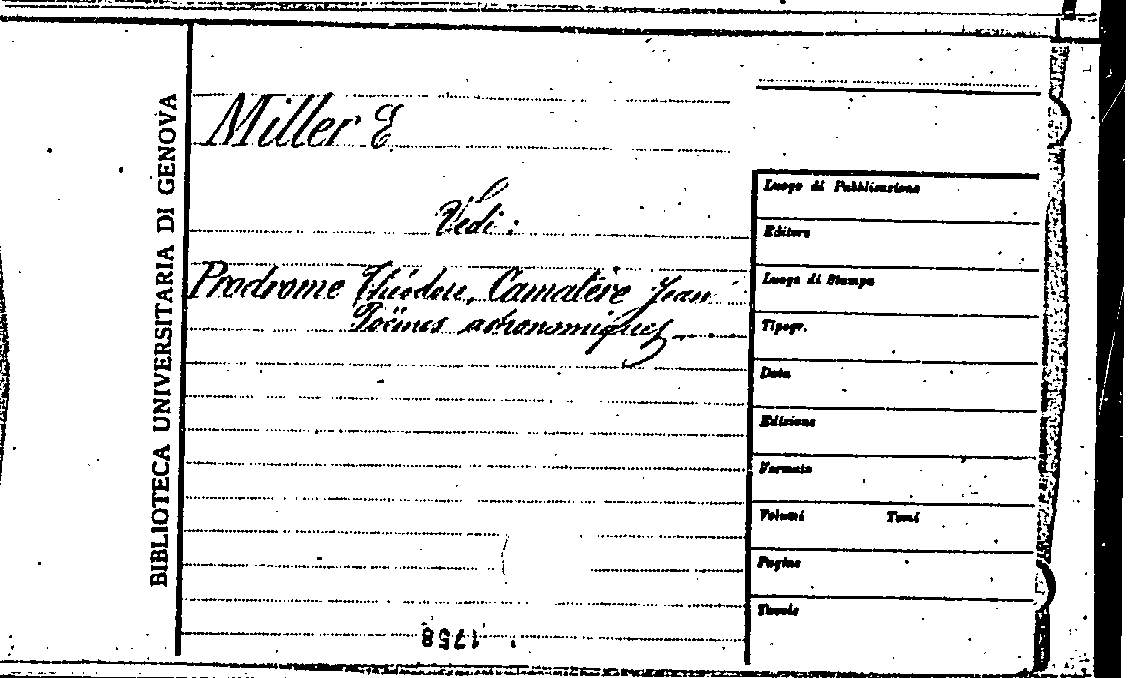 BIBLIOTECA UNIVERSITARIA DI GENOVA
Miller E
Vedi :
Prodrome Théodore, Camatère Jean
Poëmes astronomiques
Luogo di Pubblicazione
Editore
Luogo di Stampa
Tipogr.
Data
Edizione
Formato
Volumi Tomi
Pagine
Tavole
1758